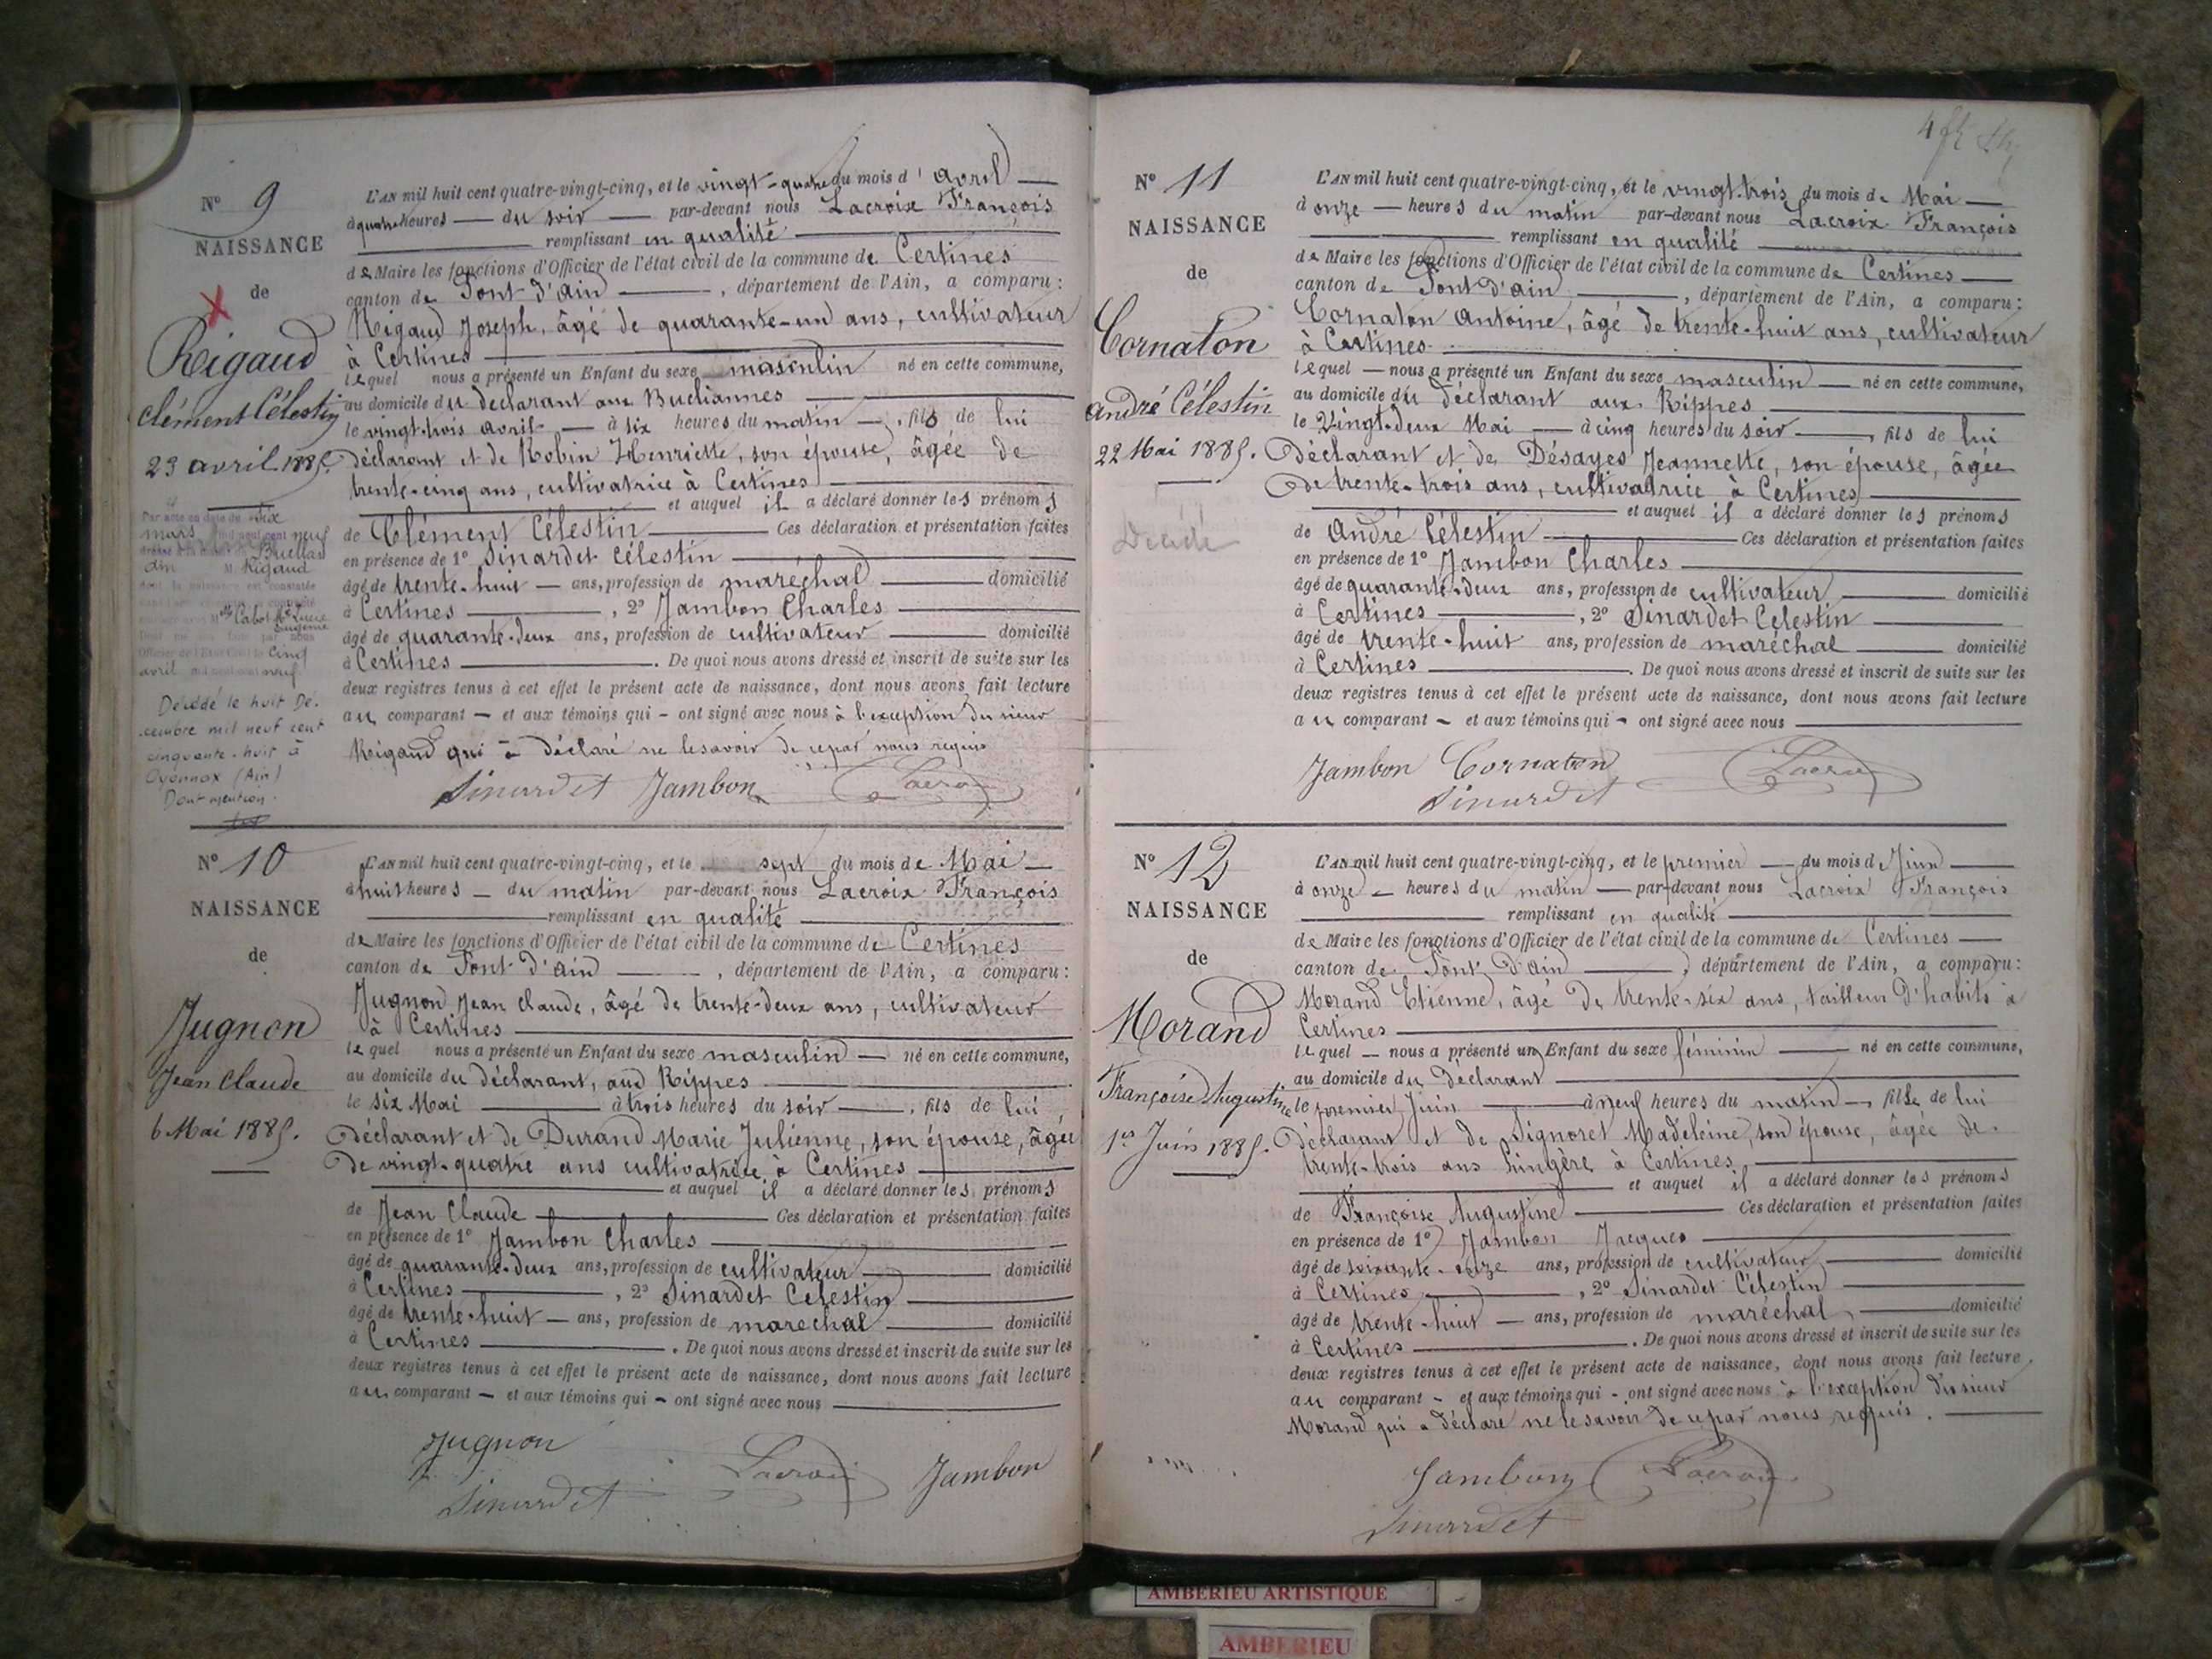 N° 9
NAISSANCE
de
Rigaud
Clément Célestin
23 avril 1885.
Par acte en date du dix
mars mil neuf cent neuf
Buellas
Ain M. Rigaud
dont la naissance est constatée
Cabot
Eugénie
Officier de l'Etat Civil le cinq
avril mil neuf cent neuf.
Décédé le huit Dé-
cembre mil neuf cent
cinquante-huit à
Oyonnax (Ain)
Dont mention.
L'AN mil huit cent quatre-vingt-cinq, et le vingt-quatre du mois d'avril
à quatre heures du soir par-devant nous Lacroix François
remplissant en qualité
de Maire les fonctions d'Officier de l'état civil de la commune de Certines
canton de Pont d'Ain, département de l'Ain, a comparu:
Rigaud Joseph, âgé de quarante-un ans, cultivateur
à Certines
lequel nous a présenté un Enfant du sexe masculin né en cette commune,
au domicile du déclarant aux
le vingt-trois avril à six heures du matin, fils de lui
déclarant et de Robin Henriette, son épouse, âgée de
trente-cinq ans, cultivatrice à Certines
et auquel il a déclaré donner les prénoms
de Clément Célestin Ces déclaration et présentation faites
en présence de 1° Sinardet Célestin
âgé de trente-huit ans, profession de maréchal domicilié
à Certines, 2° Jambon Charles
âgé de quarante-deux ans, profession de cultivateur domicilié
à Certines. De quoi nous avons dressé et inscrit de suite sur les
deux registres tenus à cet effet le présent acte de naissance, dont nous avons fait lecture
au comparant et aux témoins qui ont signé avec nous à l'exception du sieur
Rigaud qui a déclaré ne le savoir de ce par nous requis
Sinardet Jambon Lacroix
N° 10
NAISSANCE
de
Jugnon
Jean Claude
6 Mai 1885.
L'AN mil huit cent quatre-vingt-cinq, et le sept du mois de Mai
à huit heures du matin par-devant nous Lacroix François
remplissant en qualité
de Maire les fonctions d'Officier de l'état civil de la commune de Certines
canton de Pont d'Ain, département de l'Ain, a comparu:
Jugnon Jean Claude, âgé de trente-deux ans, cultivateur
à Certines
lequel nous a présenté un Enfant du sexe masculin né en cette commune,
au domicile du déclarant, aux Rippes
le six Mai à trois heures du soir, fils de lui,
déclarant et de Durand Marie Julienne, son épouse, âgée
de vingt-quatre ans cultivatrice à Certines
et auquel il a déclaré donner les prénoms
de Jean Claude Ces déclaration et présentation faites
en présence de 1° Jambon Charles
âgé de quarante-deux ans, profession de cultivateur domicilié
à Certines, 2° Sinardet Celestin
âgé de trente-huit ans, profession de marechal domicilié
à Certines. De quoi nous avons dressé et inscrit de suite sur les
deux registres tenus à cet effet le présent acte de naissance, dont nous avons fait lecture
au comparant et aux témoins qui ont signé avec nous
Jugnon
Sinardet Lacroix Jambon
N° 11
NAISSANCE
de
Cornaton
André Célestin
22 Mai 1885.
Décédé
L'AN mil huit cent quatre-vingt-cinq, et le vingt-trois du mois de Mai
à onze heures du matin par-devant nous Lacroix François
remplissant en qualité
de Maire les fonctions d'Officier de l'état civil de la commune de Certines
canton de Pont d'Ain, département de l'Ain, a comparu:
Cornaton Antoine, âgé de trente-huit ans, cultivateur
à Certines
lequel nous a présenté un Enfant du sexe masculin né en cette commune,
au domicile du déclarant aux Rippes
le Vingt-deux Mai à cinq heures du soir, fils de lui
déclarant et de Désayes Jeannette, son épouse, âgée
de trente-trois ans, cultivatrice à Certines
et auquel il a déclaré donner les prénoms
de André Célestin Ces déclaration et présentation faites
en présence de 1° Jambon Charles
âgé de quarante-deux ans, profession de cultivateur domicilié
à Certines, 2° Sinardet Celestin
âgé de trente-huit ans, profession de maréchal domicilié
à Certines. De quoi nous avons dressé et inscrit de suite sur les
deux registres tenus à cet effet le présent acte de naissance, dont nous avons fait lecture
au comparant et aux témoins qui ont signé avec nous
Jambon Cornaton Lacroix
Sinardet
N° 12
NAISSANCE
de
Morand
Françoise Augustine
1er Juin 1885.
L'AN mil huit cent quatre-vingt-cinq, et le premier du mois de Juin
à onze heures du matin par-devant nous Lacroix François
remplissant en qualité
de Maire les fonctions d'Officier de l'état civil de la commune de Certines
canton de Pont d'Ain, département de l'Ain, a comparu:
Morand Etienne, âgé de trente-six ans, tailleur d'habits à
Certines
lequel nous a présenté un Enfant du sexe féminin né en cette commune,
au domicile du déclarant
le premier Juin à neuf heures du matin, fille de lui
déclarant et de Signoret Madeleine, son épouse, âgée de
trente-trois ans lingère à Certines
et auquel il a déclaré donner les prénoms
de Françoise Augustine Ces déclaration et présentation faites
en présence de 1° Jambon Jacques
âgé de soixante-onze ans, profession de cultivateur domicilié
à Certines, 2° Sinardet Célestin
âgé de trente-huit ans, profession de maréchal domicilié
à Certines. De quoi nous avons dressé et inscrit de suite sur les
deux registres tenus à cet effet le présent acte de naissance, dont nous avons fait lecture
au comparant et aux témoins qui ont signé avec nous à l'exception du sieur
Morand qui a déclaré ne le savoir de ce par nous requis.
Jambon Lacroix
Sinardet
AMBERIEU ARTISTIQUE
AMBERIEU